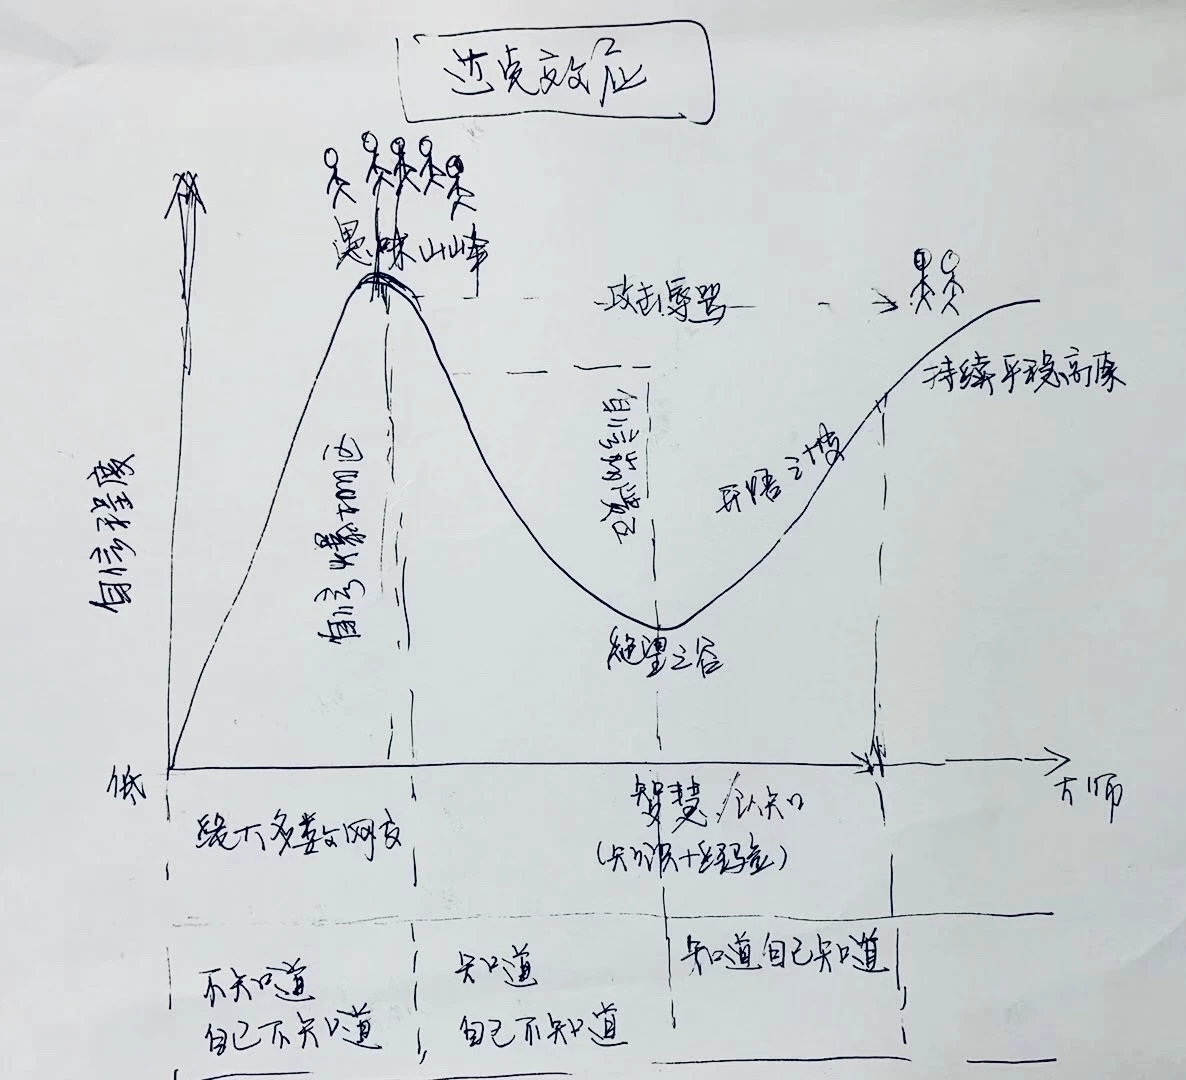 达克效应
愚昧山峰
攻击辱骂
持续平稳高原
自信程度
自信爆棚区
自信崩溃区
开悟之坡
绝望之谷
低
大师
绝大多数网友
智慧/认知
(知识+经验)
不知道
自己不知道
知道
自己不知道
知道自己知道